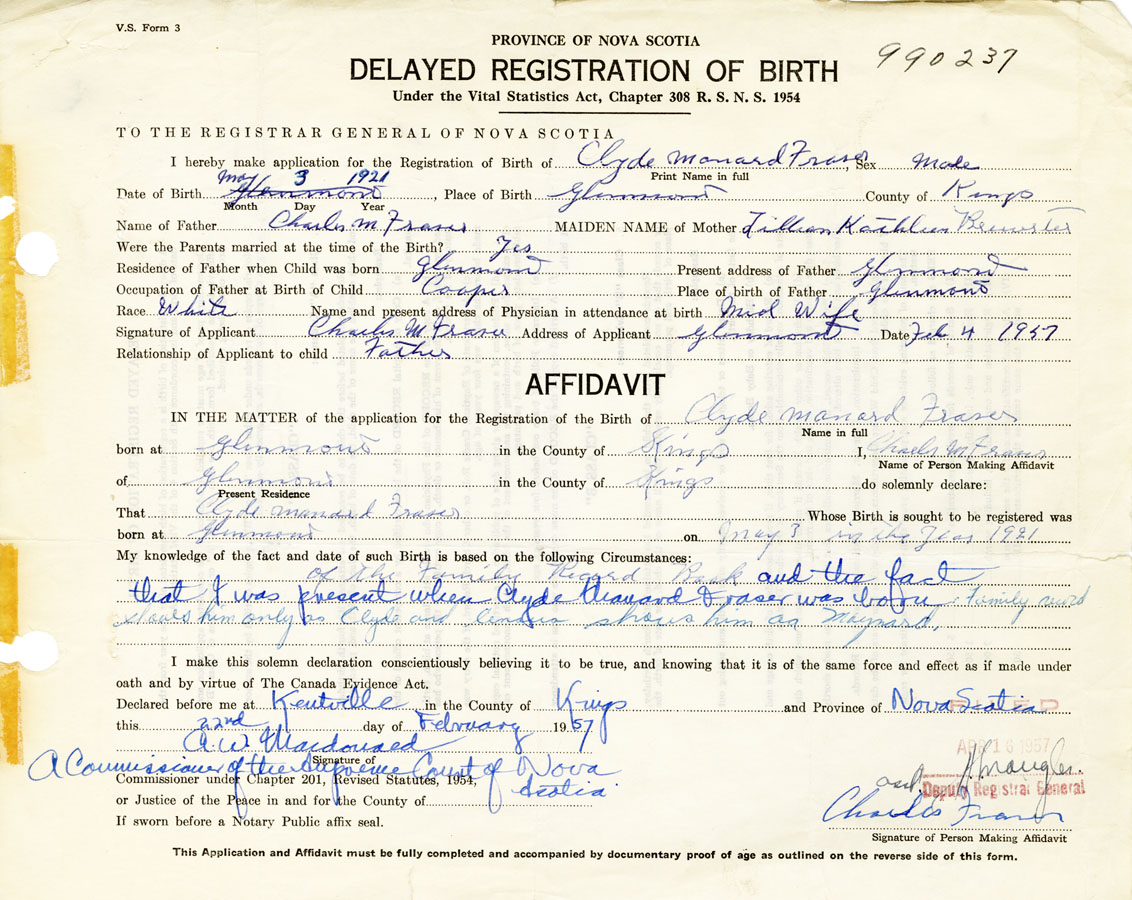 V.S. Form 3
PROVINCE OF NOVA SCOTIA
990237
DELAYED REGISTRATION OF BIRTH
Under the Vital Statistics Act, Chapter 308 R. S. N. S. 1954
TO THE REGISTRAR GENERAL OF NOVA SCOTIA
I hereby make application for the Registration of Birth of Clyde Manard Fraser, Sex Male
Print Name in full
May 3 1921
Date of Birth Glenmont, Place of Birth Glenmont County of Kings
Month Day Year
Name of Father Charles M. Fraser MAIDEN NAME of Mother Lillian Kathleen Brewster
Were the Parents married at the time of the Birth? Yes
Residence of Father when Child was born Glenmont Present address of Father Glenmont
Occupation of Father at Birth of Child Cooper Place of birth of Father Glenmont
Race White Name and present address of Physician in attendance at birth Mid Wife
Signature of Applicant Charles M. Fraser Address of Applicant Glenmont Date Feb 4 1957
Relationship of Applicant to child Father
AFFIDAVIT
IN THE MATTER of the application for the Registration of the Birth of Clyde Manard Fraser
Name in full
born at Glenmont in the County of Kings I, Charles M Fraser
Name of Person Making Affidavit
of Glenmont in the County of Kings do solemnly declare:
Present Residence
That Clyde Manard Fraser Whose Birth is sought to be registered was
born at Glenmont on May 3 in the Year 1921
My knowledge of the fact and date of such Birth is based on the following Circumstances:
of the Family Record Book and the fact
that I was present when Clyde Manard Fraser was born. Family record
shows him only as Clyde and census shows him as Maynard.
I make this solemn declaration conscientiously believing it to be true, and knowing that it is of the same force and effect as if made under
oath and by virtue of The Canada Evidence Act.
Declared before me at Kentville in the County of Kings and Province of Nova Scotia
this 22nd day of February 1957
A.W. Macdonald
APR 16 1957
Signature of
A Commissioner of the Supreme Court of Nova Scotia
Commissioner under Chapter 201, Revised Statutes, 1954,
Deputy Registrar General
or Justice of the Peace in and for the County of
Charles Fraser
If sworn before a Notary Public affix seal.
Signature of Person Making Affidavit
This Application and Affidavit must be fully completed and accompanied by documentary proof of age as outlined on the reverse side of this form.